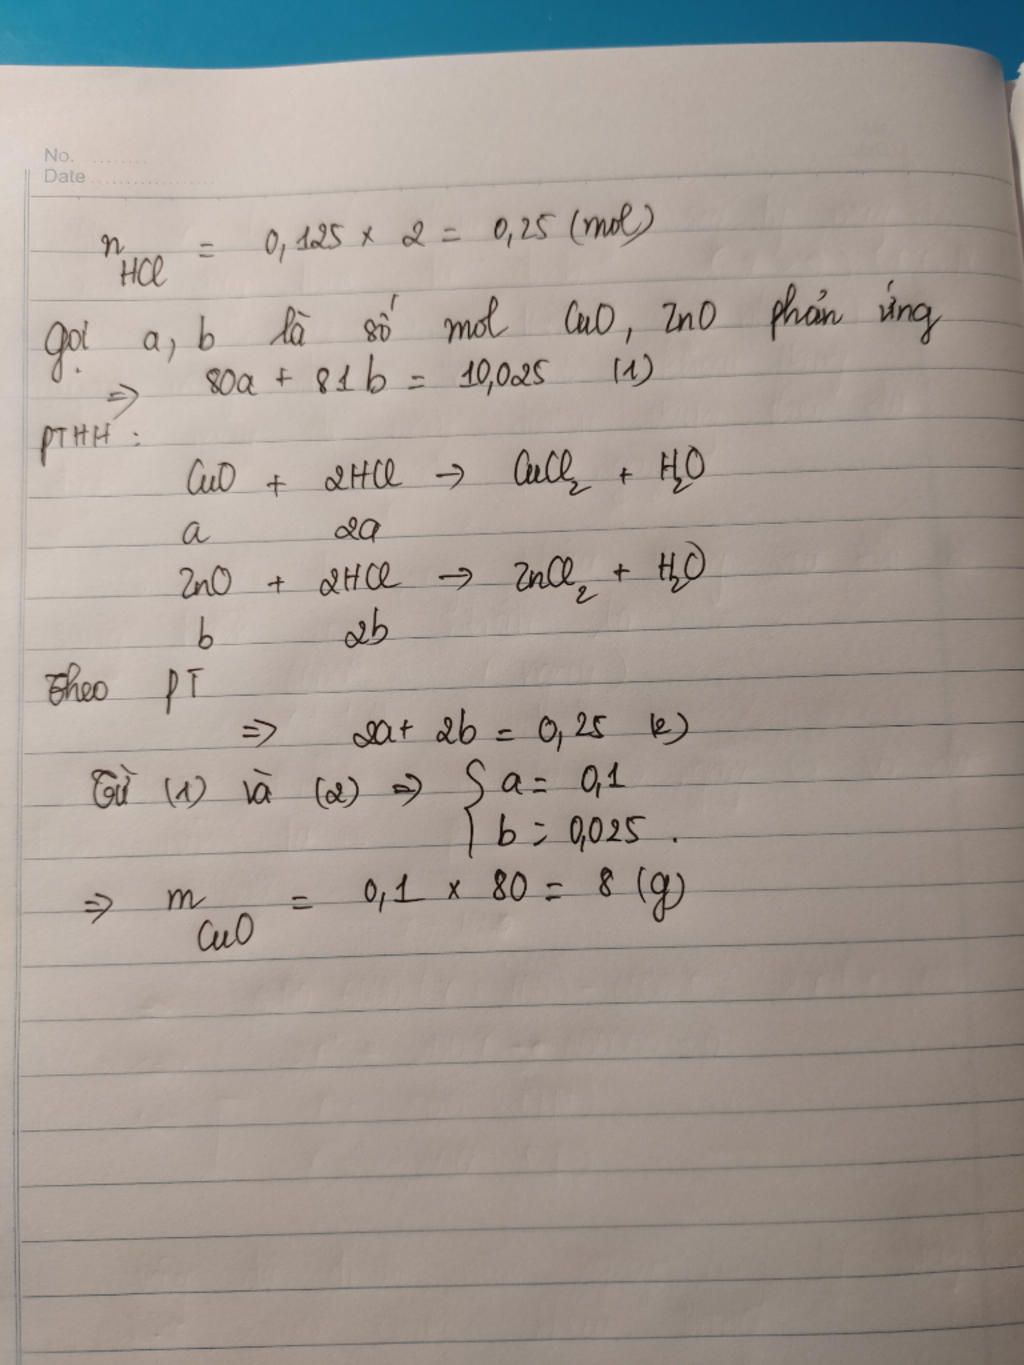 No. ........
Date ..................
n HCl = 0,125 × 2 = 0,25 (mol)
Gọi a, b là số mol CuO, ZnO phản ứng
=> 80a + 81b = 10,025 (1)
PTHH :
CuO + 2HCl → CuCl₂ + H₂O
a 2a
ZnO + 2HCl → ZnCl₂ + H₂O
b 2b
Theo PT
=> 2a + 2b = 0,25 (2)
Từ (1) và (2) => { a = 0,1
b = 0,025 .
=> m CuO = 0,1 × 80 = 8 (g)